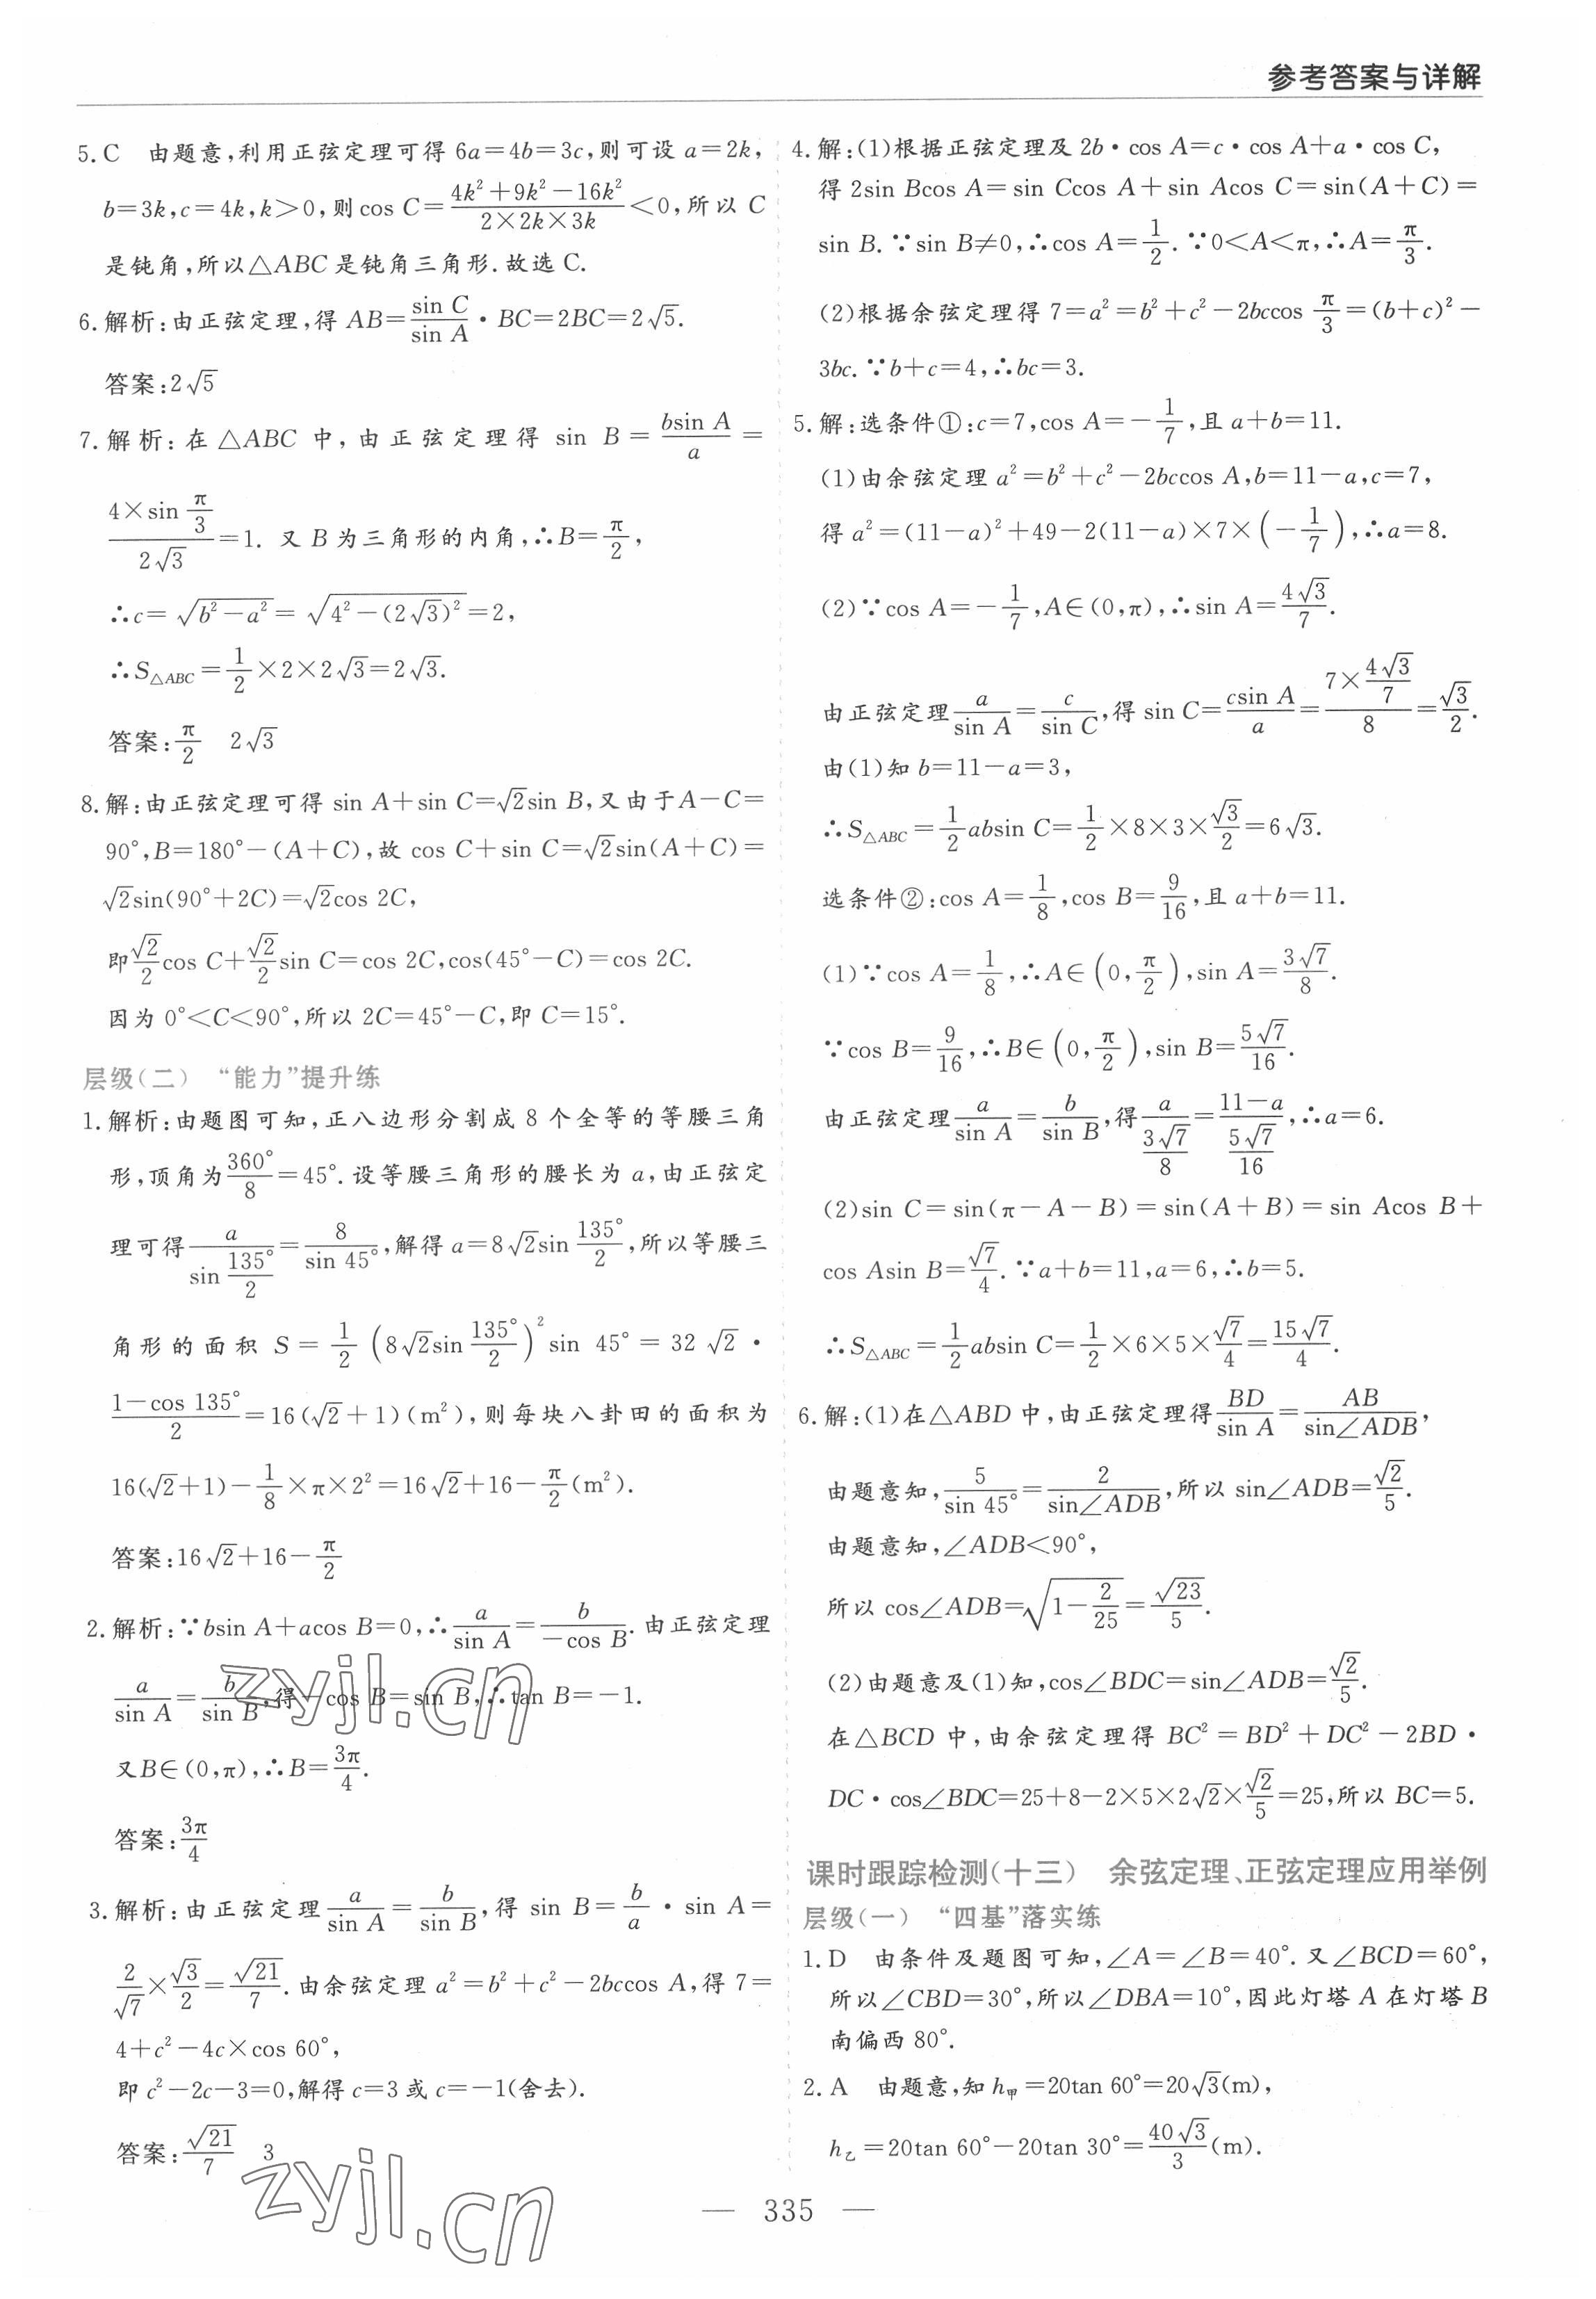 参考答案与详解
5.C 由题意,利用正弦定理可得 6a=4b=3c,则可设 a=2k,
b=3k,c=4k,k>0,则 cos C=\frac{4k²+9k²-16k²}{2×2k×3k}<0,所以 C
是钝角,所以△ABC 是钝角三角形.故选 C.
6.解析:由正弦定理,得 AB=\frac{sin C}{sin A}·BC=2BC=2√5.
答案:2√5
7.解析:在△ABC 中,由正弦定理得 sin B=\frac{bsin A}{a}=
\frac{4×sin \frac{π}{3}}{2√3}=1. 又 B 为三角形的内角,∴B=\frac{π}{2},
∴c=\sqrt{b²-a²}=\sqrt{4²-(2√3)²}=2,
∴S_{△ABC}=\frac{1}{2}×2×2√3=2√3.
答案:\frac{π}{2} 2√3
8.解:由正弦定理可得 sin A+sin C=√2sin B,又由于 A-C=
90°,B=180°-(A+C),故 cos C+sin C=√2sin(A+C)=
√2sin(90°+2C)=√2cos 2C,
即\frac{√2}{2}cos C+\frac{√2}{2}sin C=cos 2C,cos(45°-C)=cos 2C.
因为 0°<C<90°,所以 2C=45°-C,即 C=15°.
层级(二) “能力”提升练
1.解析:由题图可知,正八边形分割成 8 个全等的等腰三角
形,顶角为\frac{360°}{8}=45°.设等腰三角形的腰长为 a,由正弦定
理可得\frac{a}{sin \frac{135°}{2}}=\frac{8}{sin 45°},解得 a=8√2sin \frac{135°}{2},所以等腰三
角形的面积 S=\frac{1}{2}(8√2sin \frac{135°}{2})²sin 45°=32√2·
\frac{1-cos 135°}{2}=16(√2+1)(m²),则每块八卦田的面积为
16(√2+1)-\frac{1}{8}×π×2²=16√2+16-\frac{π}{2}(m²).
答案:16√2+16-\frac{π}{2}
2.解析:∵bsin A+acos B=0,∴\frac{a}{sin A}=\frac{b}{-cos B}.由正弦定理
\frac{a}{sin A}=\frac{b}{sin B},得-cos B=sin B,∴tan B=-1.
又B∈(0,π),∴B=\frac{3π}{4}.
答案:\frac{3π}{4}
3.解析:由正弦定理\frac{a}{sin A}=\frac{b}{sin B},得 sin B=\frac{b}{a}·sin A=
\frac{2}{√7}×\frac{√3}{2}=\frac{√21}{7}.由余弦定理 a²=b²+c²-2bccos A,得 7=
4+c²-4c×cos 60°,
即 c²-2c-3=0,解得 c=3 或 c=-1(舍去).
答案:\frac{√21}{7} 3
4.解:(1)根据正弦定理及 2b·cos A=c·cos A+a·cos C,
得 2sin Bcos A=sin Ccos A+sin Acos C=sin(A+C)=
sin B.∵sin B≠0,∴cos A=\frac{1}{2}.∵0<A<π,∴A=\frac{π}{3}.
(2)根据余弦定理得 7=a²=b²+c²-2bccos \frac{π}{3}=(b+c)²-
3bc.∵b+c=4,∴bc=3.
5.解:选条件①:c=7,cos A=-\frac{1}{7},且 a+b=11.
(1)由余弦定理 a²=b²+c²-2bccos A,b=11-a,c=7,
得 a²=(11-a)²+49-2(11-a)×7×(-\frac{1}{7}),∴a=8.
(2)∵cos A=-\frac{1}{7},A∈(0,π),∴sin A=\frac{4√3}{7}.
由正弦定理\frac{a}{sin A}=\frac{c}{sin C},得 sin C=\frac{csin A}{a}=\frac{7×\frac{4√3}{7}}{8}=\frac{√3}{2}.
由(1)知 b=11-a=3,
∴S_{△ABC}=\frac{1}{2}absin C=\frac{1}{2}×8×3×\frac{√3}{2}=6√3.
选条件②:cos A=\frac{1}{8},cos B=\frac{9}{16},且 a+b=11.
(1)∵cos A=\frac{1}{8},∴A∈(0,\frac{π}{2}),sin A=\frac{3√7}{8}.
∵cos B=\frac{9}{16},∴B∈(0,\frac{π}{2}),sin B=\frac{5√7}{16}.
由正弦定理\frac{a}{sin A}=\frac{b}{sin B},得\frac{a}{\frac{3√7}{8}}=\frac{11-a}{\frac{5√7}{16}},∴a=6.
(2)sin C=sin(π-A-B)=sin(A+B)=sin Acos B+
cos Asin B=\frac{√7}{4}.∵a+b=11,a=6,∴b=5.
∴S_{△ABC}=\frac{1}{2}absin C=\frac{1}{2}×6×5×\frac{√7}{4}=\frac{15√7}{4}.
6.解:(1)在△ABD 中,由正弦定理得\frac{BD}{sin A}=\frac{AB}{sin∠ADB},
由题意知,\frac{5}{sin 45°}=\frac{2}{sin∠ADB},所以 sin∠ADB=\frac{√2}{5}.
由题意知,∠ADB<90°,
所以 cos∠ADB=\sqrt{1-\frac{2}{25}}=\frac{√23}{5}.
(2)由题意及(1)知,cos∠BDC=sin∠ADB=\frac{√2}{5}.
在△BCD 中,由余弦定理得 BC²=BD²+DC²-2BD·
DC·cos∠BDC=25+8-2×5×2√2×\frac{√2}{5}=25,所以 BC=5.
课时跟踪检测(十三) 余弦定理、正弦定理应用举例
层级(一) “四基”落实练
1.D 由条件及题图可知,∠A=∠B=40°.又∠BCD=60°,
所以∠CBD=30°,所以∠DBA=10°,因此灯塔 A 在灯塔 B
南偏西 80°.
2.A 由题意,知 h甲=20tan 60°=20√3(m),
h乙=20tan 60°-20tan 30°=\frac{40√3}{3}(m).
— 335 —
zyjl.cn
zyjl.cn